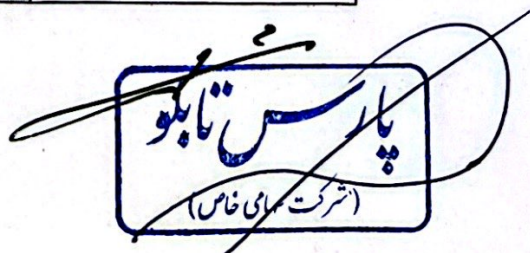 پارس تابلو
(شرکت سهامی خاص)